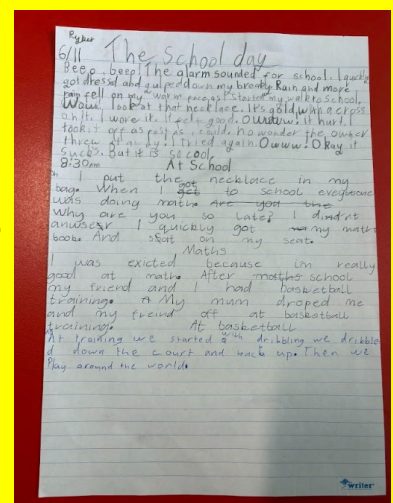 Ryker
6/11 The School day
Beep, beep! The alarm sounded for school. I quickly
got dressed and gulped down my brekky. Rain and more
rain fell on my face as I started my walk to school.
Wow! look at that necklace. It's gold with a cross
on it. I wore it. It felt good. Owwww! it hurt! I
took it off as fast as I could. no wonder the owner
threw it away. I tried again. Owww! Okay it
sucks. But it is so cool.
8:30am At School
I put the necklace in my
bag. When I got to school everyone
was doing math. Are you the
Why are you so late? I didn't
anwser I quickly got my math
book. And sat on my seat.
Maths
I was exicted because im really
good at math. After maths school
my friend and I had basketball
training. My mum droped me
and my freind off at basketball
training. At basketball
At training we started with dribbling we dribble
d down the court and back up. Then we
Play around the world.
writer